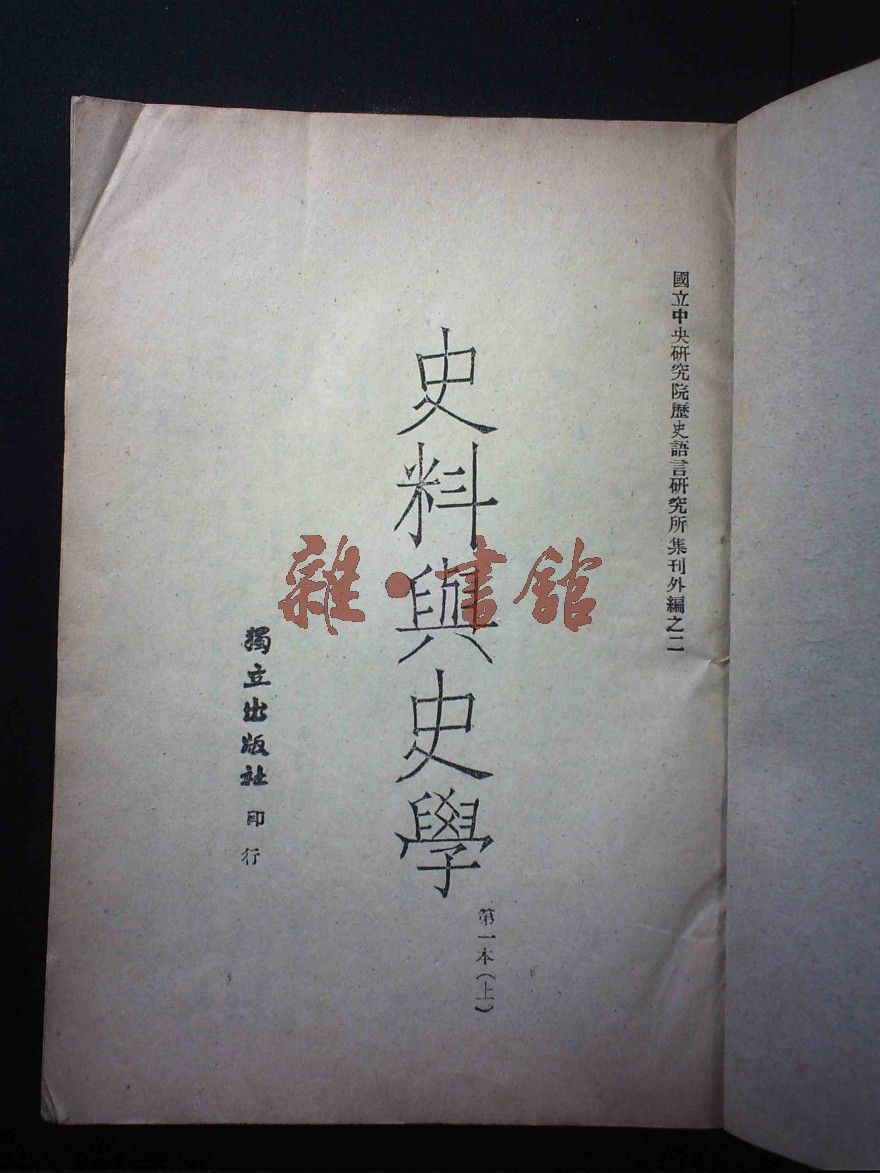 國立中央研究院歷史語言研究所集刊外編之二
史料與史學
第一本(上)
獨立出版社 印行
雜·書館